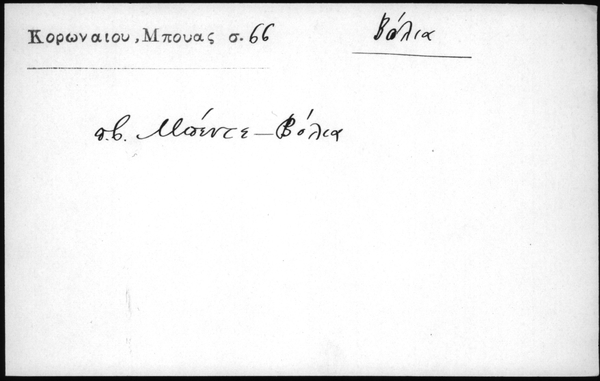 Κορωναιου, Μπουας σ. 66
Βόλια
π.β. Μπέντε - Βόλια